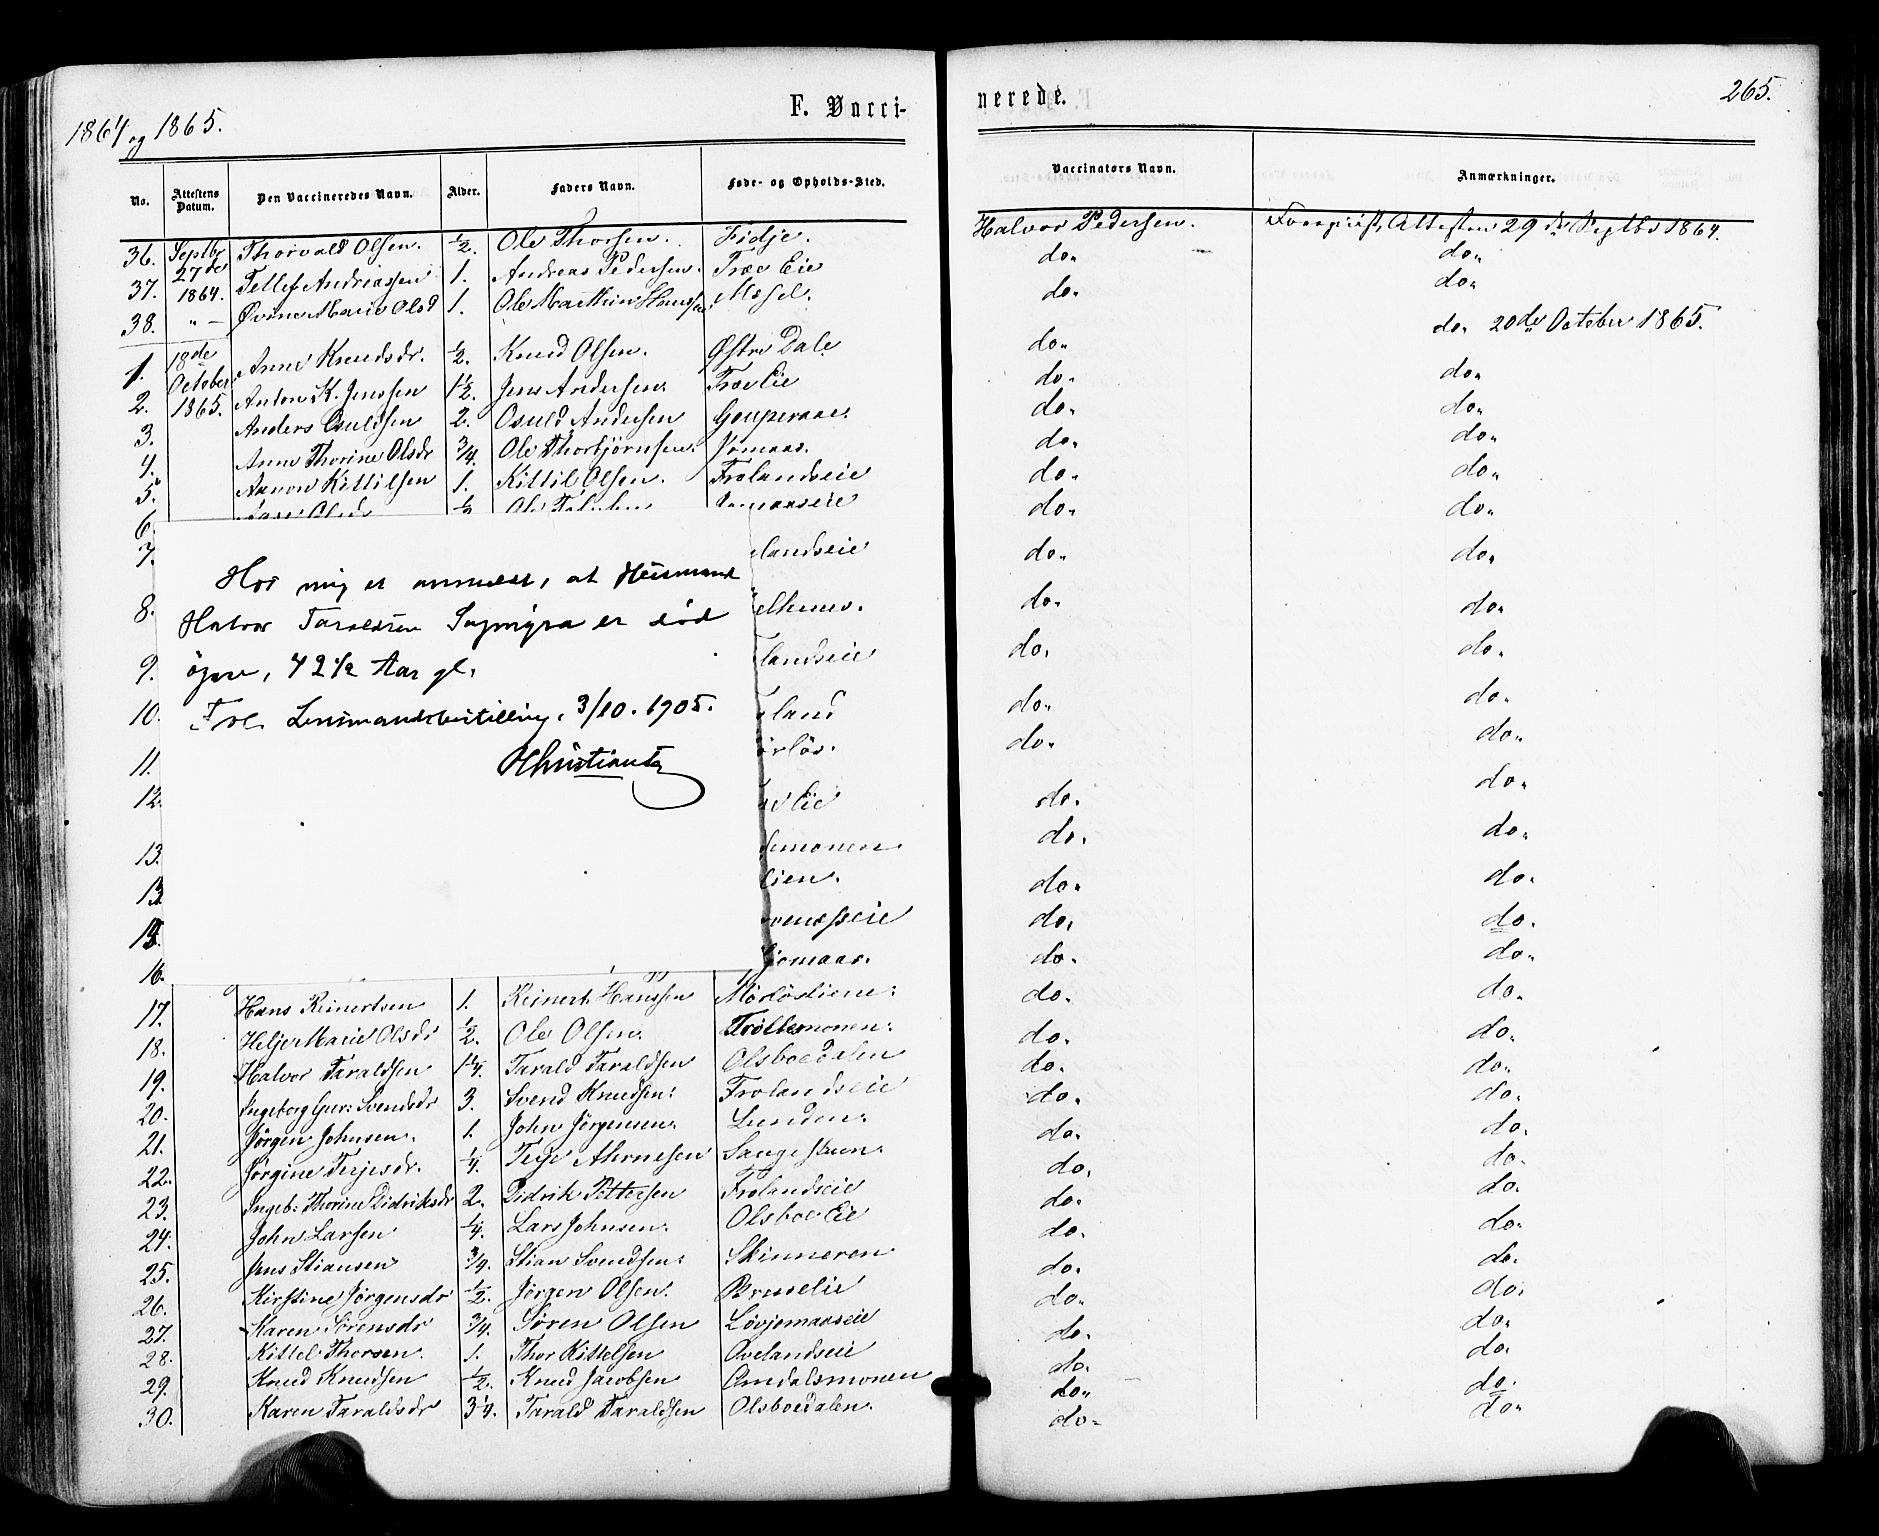 1864 og 1865.
F. Vacci-
nerede.
265.
No. Attestens Datum. Den Vaccineredes Navn. Alder. Faders Navn. Føde- og Opholds-Sted. Vaccinators Navn. Anmærkninger.
36. Septbr Thorvald Olsen. ½. Ole Thorsen. Fidje. Halvor Pedersen. Attesten 29de Septbr 1864.
37. 27de 1864. Tellef Andreassen 1. Andreas Pedersen. Træe Eie do. do.
38. " — Marie Olsd 1. Ole Mathias Messel. do. do.
1. 18de Anne Knudsdr. ½. Knud Olsen. Østre Dale do. do. 20de October 1865.
2. October Anton K. Jenssen 1½. Jens Andersen. Træe Eie do. do.
3. 1865. Anders Osuldsen 2. Osuld Andersen do. do.
4. Anne Thorine Olsdr ¾. Ole Thorbjørnsen. do. do.
5. Aanon Kittilsen 1. Kittil Olsen. Frolandseie do. do.
6. ½ Ole do. do.
7. landseie do. do.
8. do. do.
9. landseie do. do.
10. land do. do.
11. do. do.
12. Eie do. do.
13. monen do. do.
13. lien. do. do.
15. eie do. do.
16. maas. do. do.
Hos mig er anmeldt, at Huusmand
Halvor Taraldsen Sagmyra er død
igaar, 42½ Aar gl.
Fro. Lensmandsbestilling, 3/10. 1905.
OChristiansen
17. Hans Reinertsen 1. Reinert Hanssen do. do.
18. Helje Marie Olsdr ½. Ole Olsen. Trøllemonen. do. do.
19. Halvor Taraldsen 1¼. Tarald Taraldsen Olsboedalen do. do.
20. Ingeborg Gur: Svendsdr 3. Svend Knudsen. Frolandseie do. do.
21. Jørgen Johnsen. 1. John Jørgensen. Lunden. do. do.
22. Jørgine Terjesdr. ¼. Terje do. do.
23. Ingeb: Thorine Didriksdr 2. Didrik Pettersen Frolandseie do. do.
24. John Larsen ¼. Lars Johnsen. Olsboe Eie do. do.
25. Jens Stiansen ¾. Stian Svendsen. Skinneren do. do.
26. Kirstine Jørgensdr ½. Jørgen Olsen. do. do.
27. Karen Sørensdr ¾. Søren Olsen Løvjomaaseie do. do.
28. Kittel Thorsen. 1. Thor Kittelsen Ovelandseie do. do.
29. Knud Knudsen ½. Knud Jacobsen Omdalsmonen do. do.
30. Karen Taraldsdr 3¼. Tarald Taraldsen Olsboedalen. do. do.